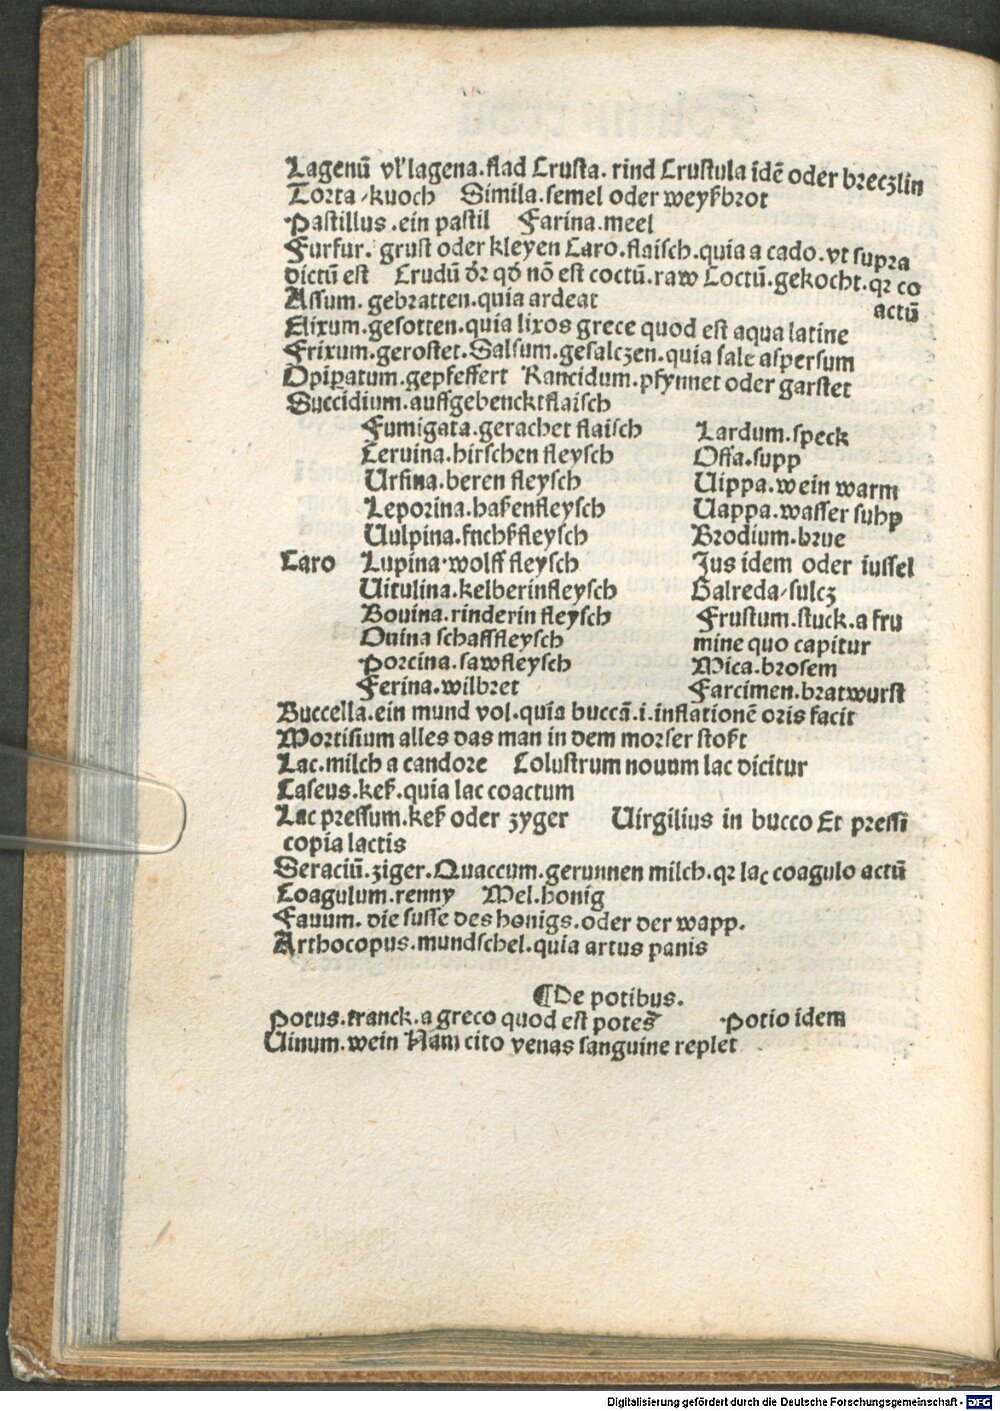 Lagenū vl' lagena.flad Crusta. rind Crustula idē oder breczlin
Torta/kuoch Simila.semel oder weyßbrot
Pastillus.ein pastil Farina.meel
Furfur. grust oder kleyen Caro.flaisch.quia a cado.vt supra
dictū est Crudū dr qd nō est coctū.raw Coctū.gekocht.qr co
Assum. gebratten.quia ardeat actū
Elixum.gesotten.quia lixos grece quod est aqua latine
Frixum.gerostet.Salsum.gesalczen.quia sale aspersum
Opiꝑatum.gepfeffert Rancidum.pfynnet oder garstet
Succidium.auffgehencktflaisch
Fumigata.gerachet flaisch
Ceruina.hirschen fleysch
Ursina.beren fleysch
Leporina.haßenfleysch
Uulpina.fuchßfleysch
Caro Lupina.wolff fleysch
Uitulina.kelberinfleysch
Bouina.rinderin fleysch
Ouina schafffleysch
Porcina.sawfleysch
Ferina.wilbret
Lardum.speck
Offa.supp
Uippa.wein warm
Uappa.wasser suhp
Brodium.brue
Jus idem oder iussel
Galreda/sulcz
Frustum.stuck.a fru
mine quo capitur
Mica.brosem
Farcimen.bratwurst
Buccella.ein mund vol.quia buccā.i.inflationē oris facit
Mortisium alles das man in dem morser stoßt
Lac.milch a candore Colustrum nouum lac dicitur
Caseus.keß.quia lac coactum
Lac pressum.keß oder zyger Uirgilius in bucco Et pressi
copia lactis
Seraciū.ziger.Quaccum.gerunnen milch.qr lac coagulo actū
Coagulum.renny Mel.honig
Fauum. die susse des honigs.oder der wapp.
Arthocopus.mundschel.quia artus panis
¶De potibus.
Potus.tranck.a greco quod est potes Potio idem
Uinum.wein Nam cito venas sanguine replet
Digitalisierung gefördert durch die Deutsche Forschungsgemeinschaft - DFG